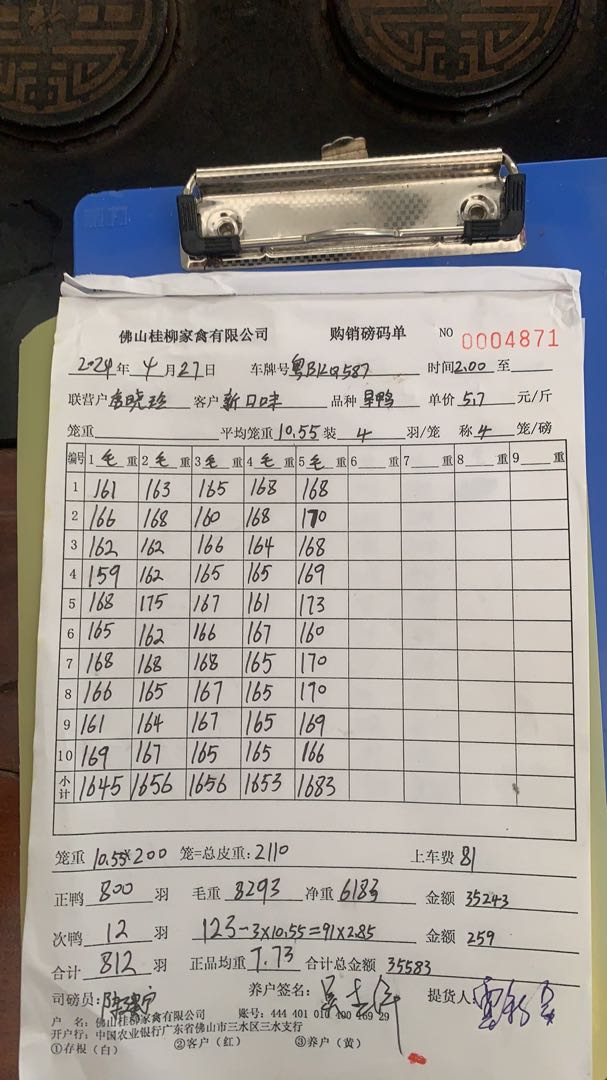 佛山桂柳家禽有限公司 购销磅码单 NO 0004871
2024年 4月27日 车牌号 时间2.00至
联营户 客户 新口味 品种 单价 5.7 元/斤
笼重 平均笼重 10.55 装 4 羽/笼 称 4 笼/磅
编号 1 毛 重 2 毛 重 3 毛 重 4 毛 重 5 毛 重 6 重 7 重 8 重 9 重
1 161 163 165 168 168
2 166 168 160 168 170
3 162 162 166 164 168
4 159 162 165 165 169
5 168 175 167 161 173
6 165 162 166 167 160
7 168 168 168 165 170
8 166 165 167 165 170
9 161 164 167 165 169
10 169 167 165 165 166
小计 1645 1656 1656 1653 1683
笼重 10.55×200 笼=总皮重:2110 上车费 81
正鸭 800 羽 毛重 8293 净重 6183 金额 35243
次鸭 12 羽 123-3×10.55=91×2.85 金额 259
合计 812 羽 正品均重 7.73 合计总金额 35583
司磅员: 养户签名: 提货人:
户 名:佛山桂柳家禽有限公司 账号:444 401 010 400 169 29
开户行:中国农业银行广东省佛山市三水区三水支行
①存根(白) ②客户(红) ③养户(黄)